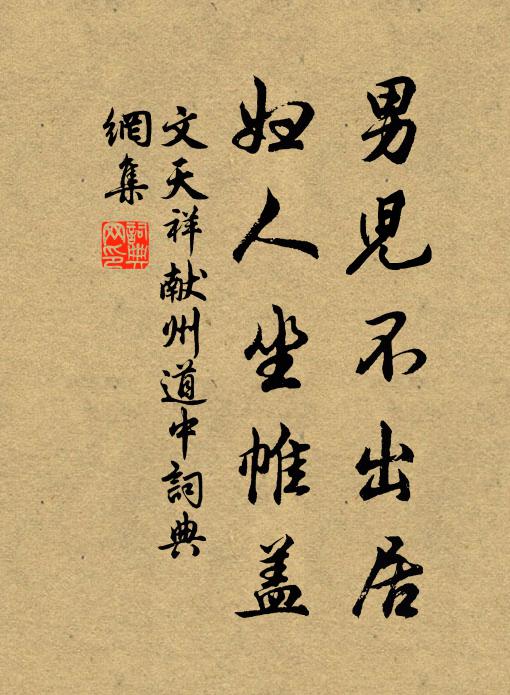 男兒不出居
妇人坐帷盖
文天祥献州道中詞典
網集
詞典
网印